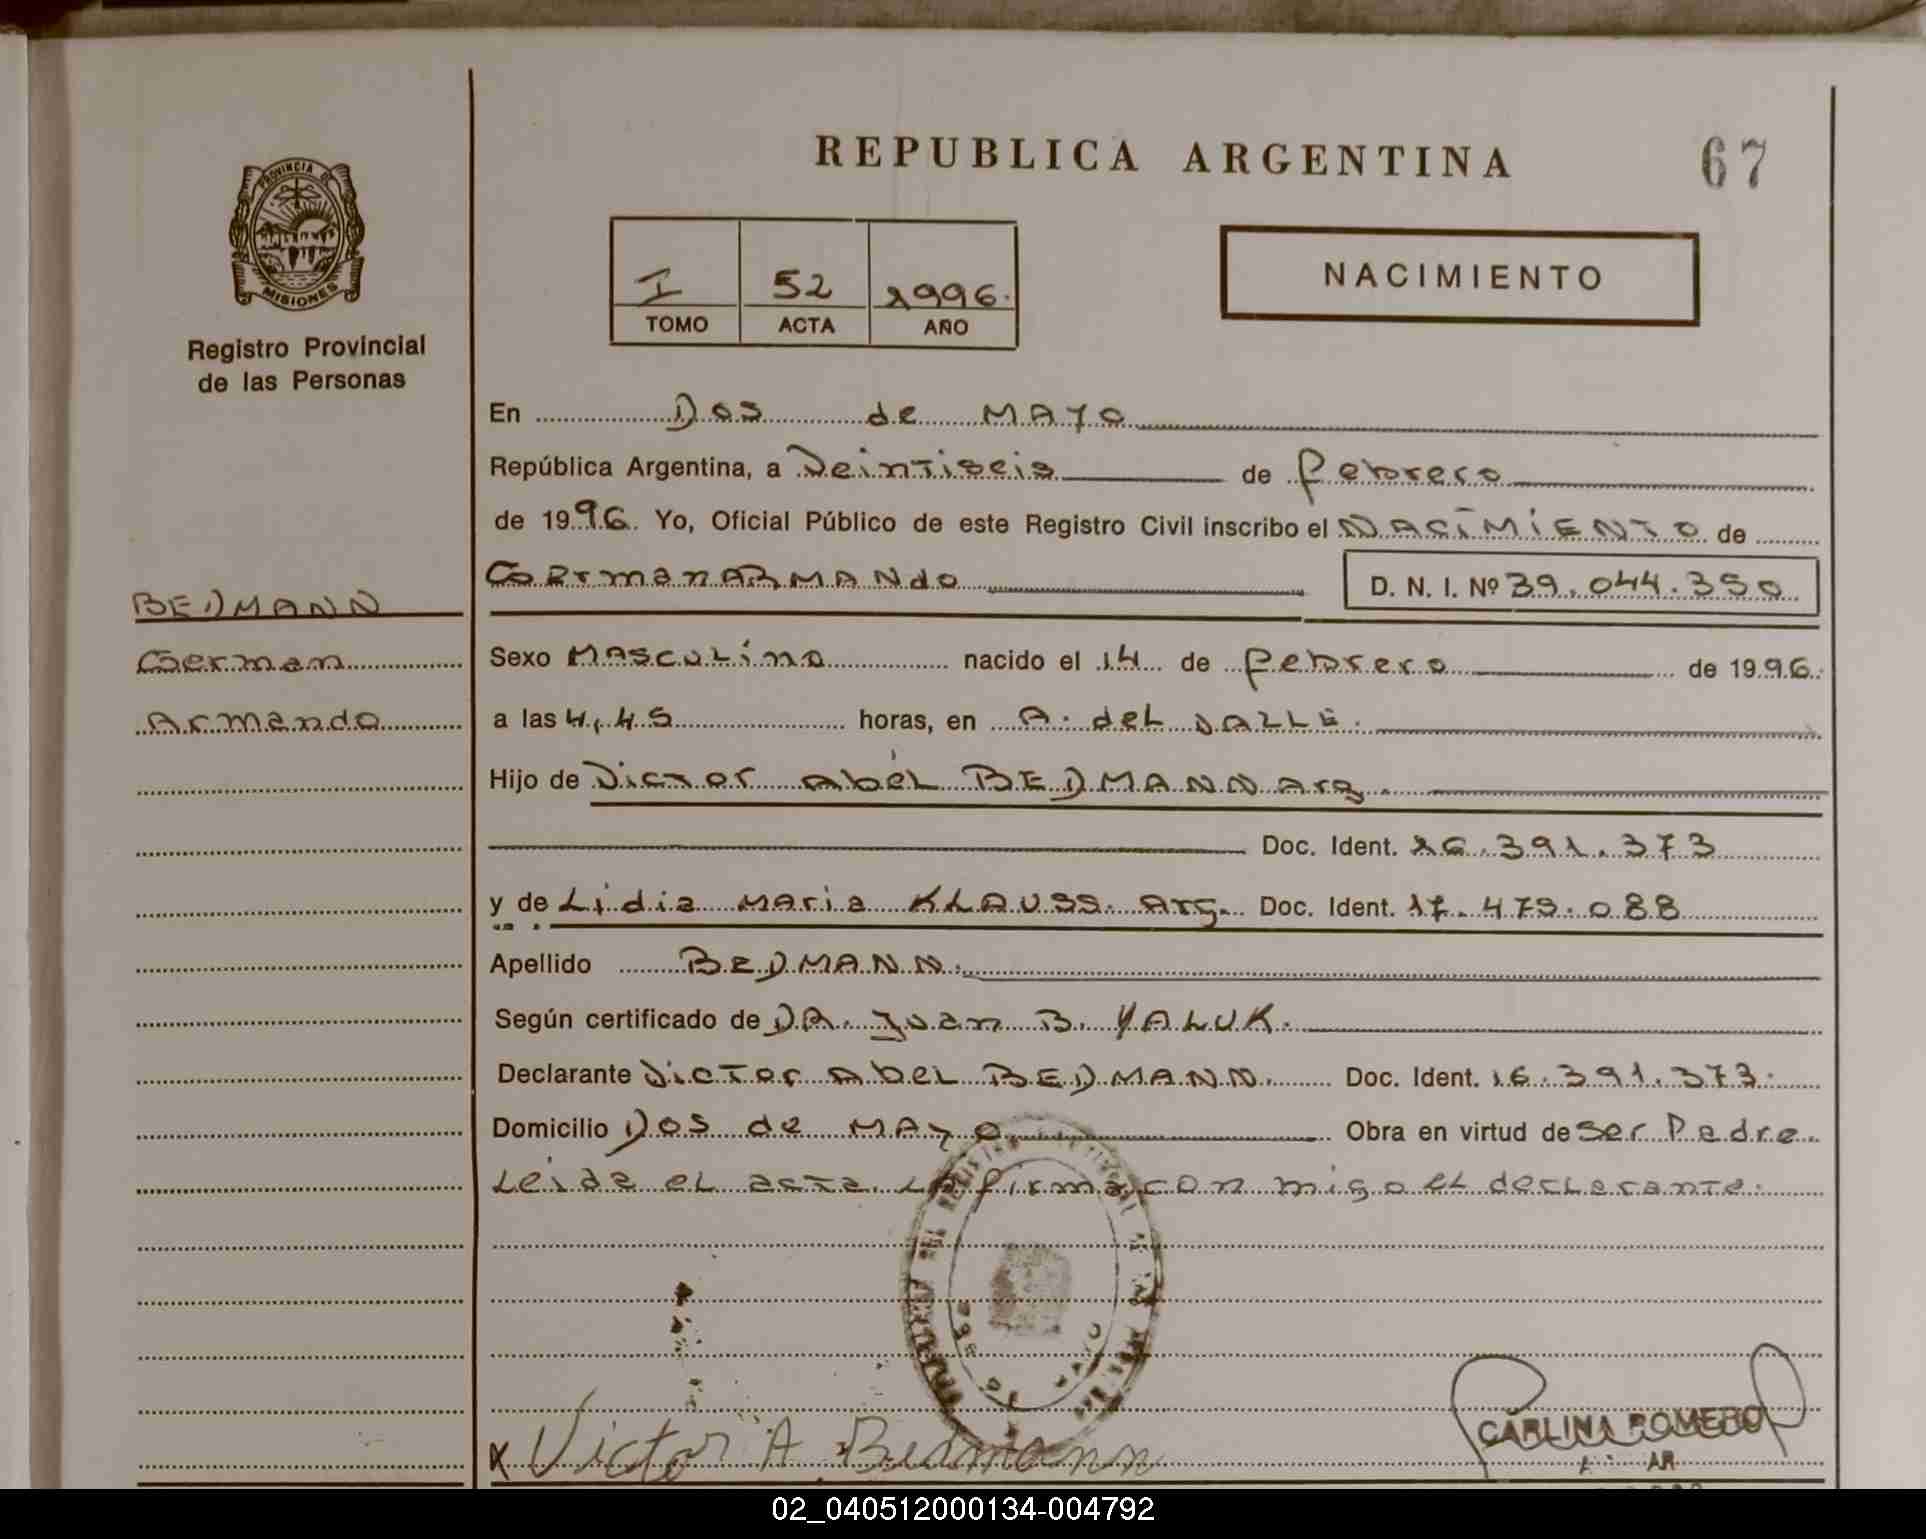 REPUBLICA ARGENTINA
67
PROVINCIA DE
MISIONES
Registro Provincial
de las Personas
I 52 1996.
TOMO ACTA AÑO
NACIMIENTO
En Dos de MAYO
República Argentina, a Veintiseis de febrero
de 1996. Yo, Oficial Público de este Registro Civil inscribo el NACIMIENTO de
German ARMANdo D. N. I. Nº 39.044.350
BEDMANN
German
Armando
Sexo MAsculino nacido el 14 de febrero de 1996.
a las 4,45 horas, en A. del VALLE.
Hijo de Victor Abél BEDMANN Arg.
Doc. Ident. 16.391.373
y de Lidia MAria KLAUSS. Arg. Doc. Ident. 17.479.088
Apellido BEDMANN.
Según certificado de DR. Juan B. YALUK.
Declarante Victor Abel BEDMANN. Doc. Ident. 16.391.373.
Domicilio Dos de MAyo Obra en virtud de ser Padre.
Leida el acta, la firma con migo el declarante.
Victor A. Bedmann
CARLINA ROMERO
02_040512000134-004792